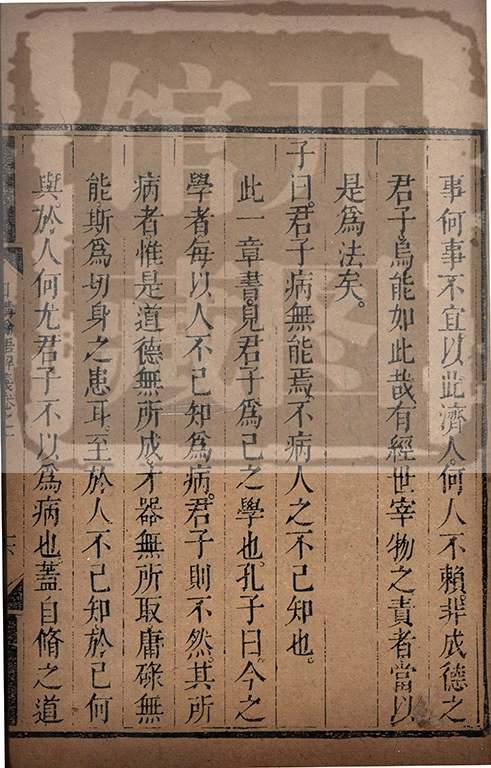 事何事不宜以此濟人何人不賴非成德之
君子烏能如此哉有經世宰物之責者當以
是為法矣。
子曰君子病無能焉不病人之不己知也。
此一章書見君子為己之學也孔子曰今之
學者每以人不己知為病君子則不然其所
病者惟是道德無所成才器無所取庸碌無
能斯為切身之患耳至於人不己知於己何
與於人何尤君子不以為病也蓋自脩之道